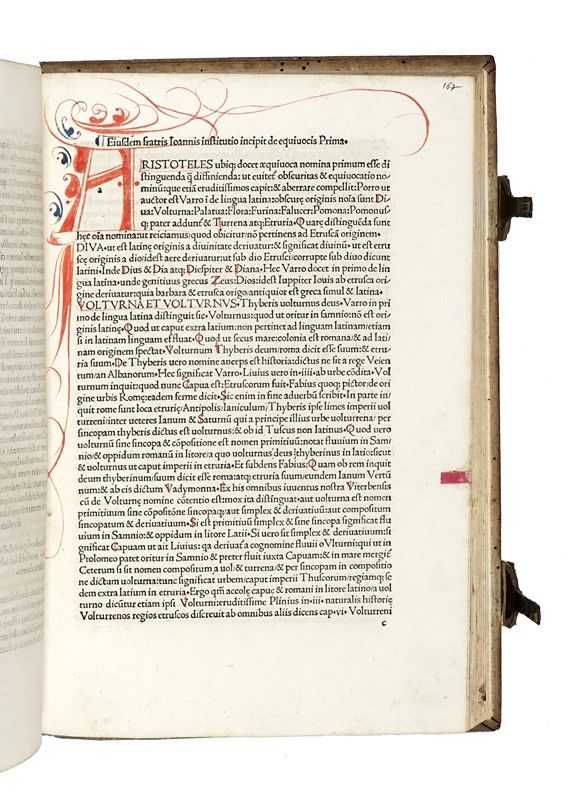 167
Eiusdem fratris Ioannis institutio incipit de equiuocis Prima.
ARISTOTELES ubiq; docet æquiuoca nomina primum esse di
stinguenda q̃ diffinienda: ut euitet̃ obscuritas & equiuocatio no-
minũ: que etiã eruditissimos capit: & aberrare compellit: Porro ut
auctor est Varro ĩ de lingua latina: obscurę originis noĩa sunt Di
ua: Volturna: Palatua: Flora: Furina: Falucer: Pomona: Pomonus
q; pater addunt̃ & Turrena atq; Etruria. Quare distinguẽda sunt
hęc oĩa nomina: ut reiciamus: quod obicitur: nõ pertinens ad Etruscã originem.
DIVA. ut est latinę originis a diuinitate deriuatur: & significat diuinũ. ut est etru
scę originis a dio: idest aere deriuatur: ut sub dio Etrusci: corrupte sub diuo dicunt
latini. Inde Dius & Dia atq; Diespiter & Diana. Hec Varro docet in primo de lin
gua latina. unde genitiuus grecus Zeus: Dios: idest Iuppiter Iouis ab etrusca ori
gine deriuatur: quia barbara & etrusca origo antiquior est greca simul & latina.
VOLTVRNA ET VOLTVRNVS. Thyberis uolturnus deus. Varro in pri
mo de lingua latina distinguit sic. Volturnus: quod ut oritur in samnio: nõ est ori-
ginis latinę. Quod ut caput extra latium: non pertinet ad linguam latinam: etiam
si in latinam linguam effluat. Quod ut secus mare: colonia est romana: & ad lati
nam originem spectat. Volturnum Thyberis deum: roma dicit esse suum: & etru
ria suum. De Thyberis uero nomine anceps est historia: dictus ne sit a rege Veien
tum an Albanorum. Hec significat Varro. Liuius uero in. iiii. ab urbe cõdita. Vol
turnum inquit: quod nunc Capua est: Etruscorum fuit. Fabius quoq; pictor: de ori
gine urbis Romę: eadem ferme dicit. Sic enim in fine aduerbũ scribit. In parte in-
quit rome sunt loca etrurię: Antipolis: Ianiculum: Thyberis ipse limes imperii uol
turreni: inter ueteres Ianum & Saturnũ qui a principe illius urbe uolturrena: per
sincopam thyberis dictus est uolturnus: & ob id Tuscus non latinus. Quod uero
uolturnũ sine sincopa & cõpositione est nomen primitiuũ: notat fluuium in Sam/
nio: & oppidum romanũ in litore: a quo uolturnus deus: thyberinus in latio: sicut
& uolturnus ut caput imperii in etruria. Et subdens Fabius: Quam ob rem inquit
deum thyberinum: suum dicit esse roma: atq; etruria suum: eundem Ianum Vertũ
num: & ab eis dictum Vadymonia. Ex his omnibus iuuentus nostra Viterbensis
cũ de Volturnę nomine cõtentio est: mox ita distinguat. aut uolturna est nomen
primitiuum sine cõpositõne sincopaq; aut simplex & deriuatiuũ: aut compositum
sincopatum & deriuatiuum. Si est primitiuũ simplex & sine sincopa significat flu
uium in Samnio: & oppidum in litore Latii. Si uero sit simplex & deriuatiuum: si
gnificat Capuam ut ait Liuius: qa deriuat̃ a cognomine fluuii oVlturni: qui ut in
Ptolomeo patet oritur in Samnio & preter fluit iuxta Capuam: & in mare mergit̃
Ceterum si sit nomen compositum a uol & turrena: & per sincopam in compositio
ne dictum uolturna: tunc significat urbem: caput imperii Thuscorum: regiamq; se
dem extra latium in etruria. Ergo qm̃ accolę capuę & romani in litore latino: a uol
turno dicũtur etiam ipsi Volturni: eruditissime Plinius in. iii. naturalis historię
Volturrenos regios etruscos discreuit ab omnibus aliis dicens cap. vi. Volturreni
c